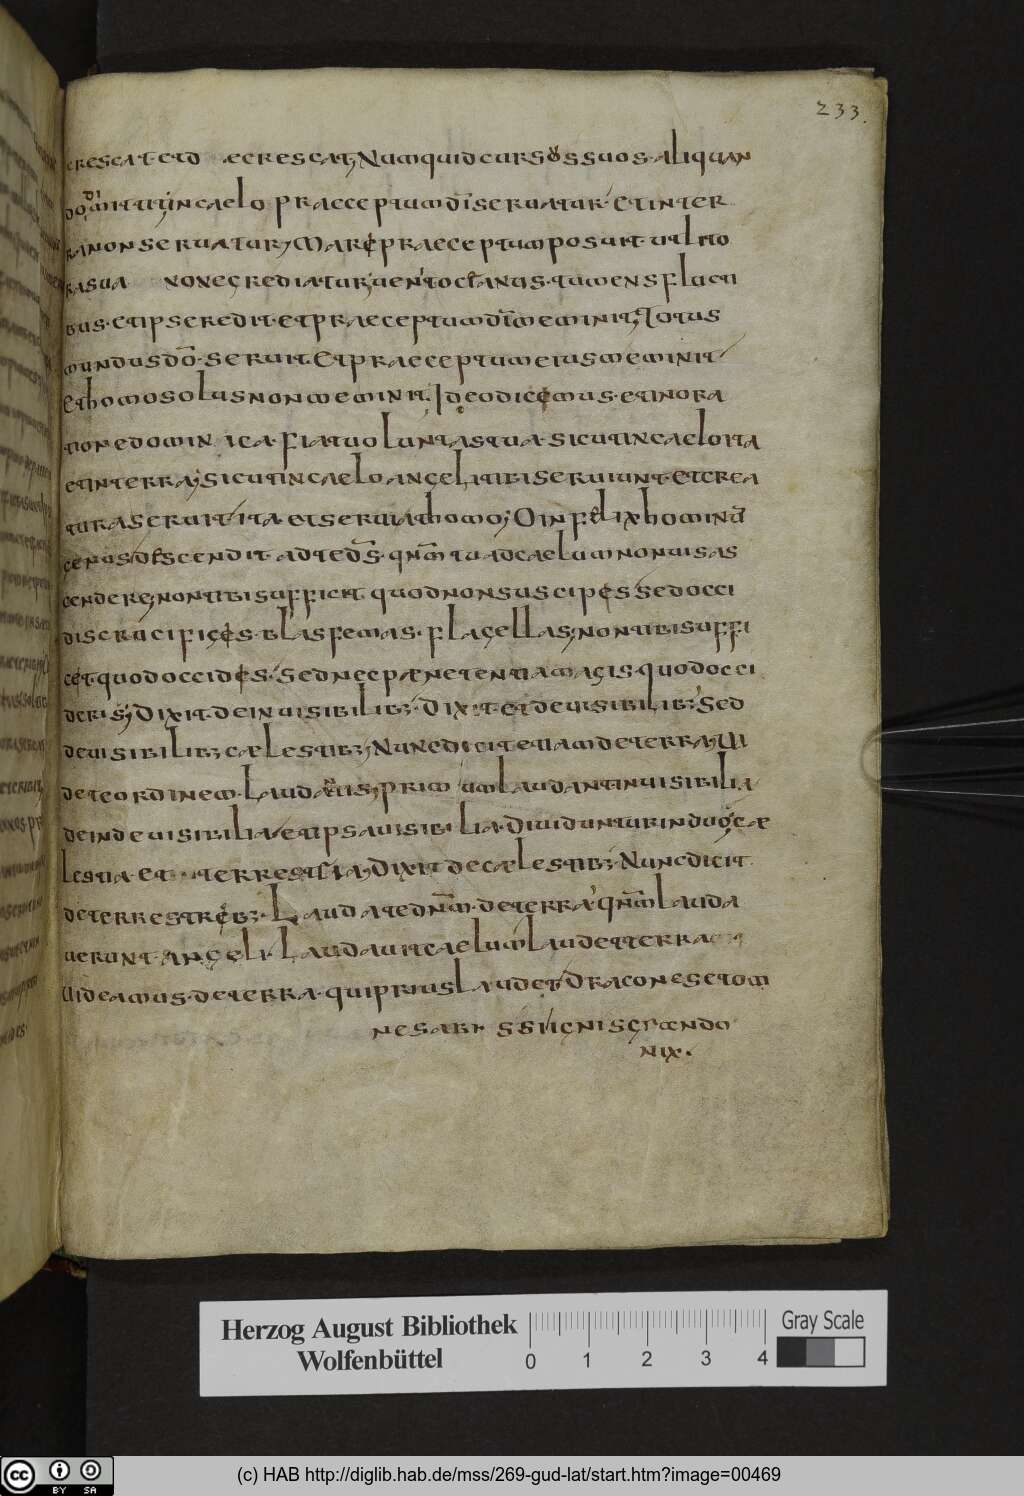 233.
crescat et d ecrescat; Numquid cursos suos aliquan
do mittit; in caelo praeceptum di seruatur. et in ter
ra non seruatur; Mare praeceptum posuit. ut lito
ra sua non egrediatur uento ciantis. tumens flucti
bus. et ipse redit. et praeceptum dm meminit; Totus
mundus do seruit. Et praeceptum eius meminit
et homo solus non meminit. Ideo dicemus. et in ora
tione domin ica. fiat uoluntas tua. sicut in caelo ita
et in terra; sicut in caelo angeli tibi seruiunt. et crea
tura seruit ita et seruiat homo; O infelix hominu
genus. descendit ad te ds. qnm tu ad caelum non uis as
cendere; non tibi sufficit quod non suscipes sed occi
dis crucifiges. blasfemas. flagellas; non tibi suffi
cet. quod occides. sed nec pænetentiam agis. quod occi
deris; Dixit de inuisibilib; Dixit et de uisibilib; Sed
de uisibilib; cælestib; Nunc dicit etiam de terra; Ui
dete ordinem. Laudatis, prim um laudant inuisibilia
deinde uisibilia et ipsa uisibilia. Diuiduntur in duo; cæ
lestia. et terrestria; Dixit de cælestib; Nunc dicit
de terrestreb; Laudate dnm. de terra. qnm lauda
uerunt angeli. Laudauit caelum laudet terra
Uideamus. de terra. qui prius laudet. Dracones et om
nes abi ssi ignis grando
nix.
Herzog August Bibliothek
Wolfenbüttel
0 1 2 3 4
Gray Scale
cc BY SA
(c) HAB http://diglib.hab.de/mss/269-gud-lat/start.htm?image=00469